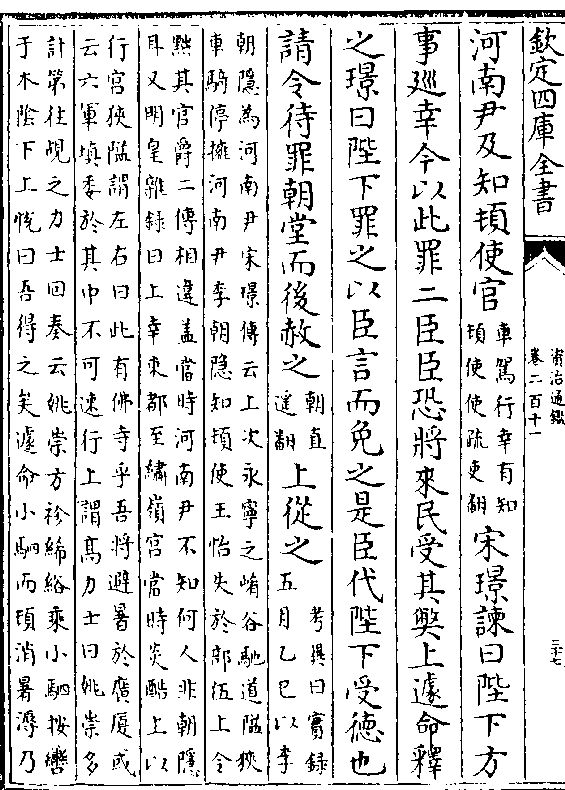 欽定四庫全書
資治通鑑
卷二百十一
三十七
河南尹及知頓使官
車駕行幸有知
頓使使疏吏翻
宋璟諫曰陛下方
事廵幸今以此罪二臣臣恐將來民受其弊上遽命釋
之璟曰陛下罪之以臣言而免之是臣代陛下受德也
請令待罪朝堂而後赦之
朝直
遙翻
上從之
考異曰實録
五月乙巳以李
朝隱為河南尹宋璟傳云上次永寧之崤谷馳道隘狹
車騎停擁河南尹李朝隐知頓使王怡失於部伍上令
黜其官爵二傳相違蓋當時河南尹不知何人非朝隱
耳又明皇雜録曰上幸東都至繡嶺宮當時炎酷上以
行宮狹隘謂左右曰此有佛寺乎吾將避暑於廣厦或
云六軍填委於其中不可速行上謂髙力士曰姚崇多
計第往覘之力士回奏云姚崇方袗絺綌乗小駟按轡
于木陰下上悅曰吾得之矣遽命小駟而頓消暑溽乃